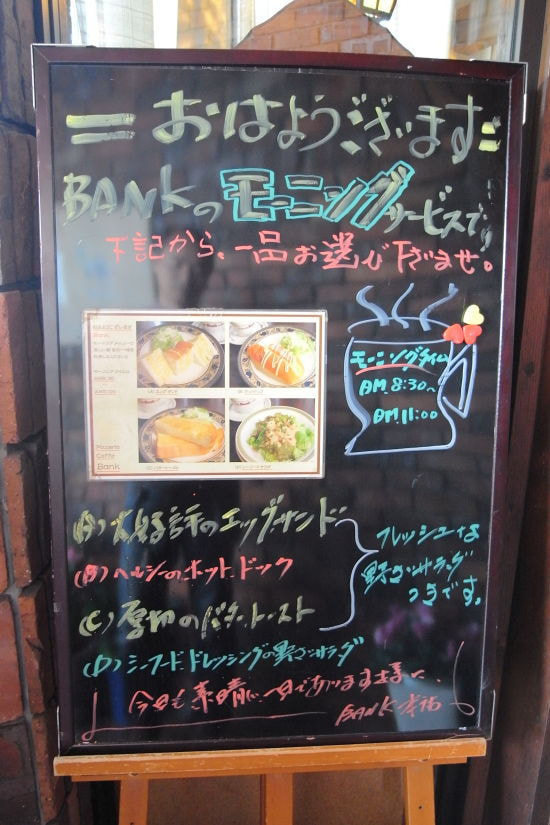 = おはようございます =
BANKのモーニングサービスです
下記から、一品お選び下ざませ。
モーニングタイム
AM 8:30〜
AM 11:00
Pizzeria
Caffé
Bank
(A) 大好評のエッグサンド
(B) ヘルシーのホットドック
(C) 厚切のバタートースト
フレッシュな
野さいサラダ
つきです。
(D) シーフードドレッシングの野さいサラダ
今日も素晴しい一日であります様に、
BANK